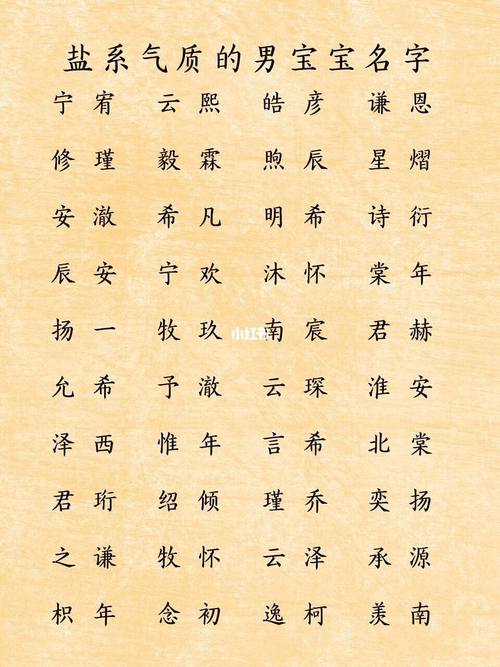 盐系气质的男宝宝名字
宁宥 云熙 皓彦 谦恩
修瑾 毅霖 煦辰 星熠
安澈 希凡 明希 诗衍
辰安 宁欢 沐怀 棠年
扬一 牧玖 南宸 君赫
小红书
允希 予澈 云琛 淮安
泽西 惟年 言希 北棠
君珩 绍倾 瑾乔 奕扬
之谦 牧怀 云泽 承源
枳年 念初 逸柯 羡南